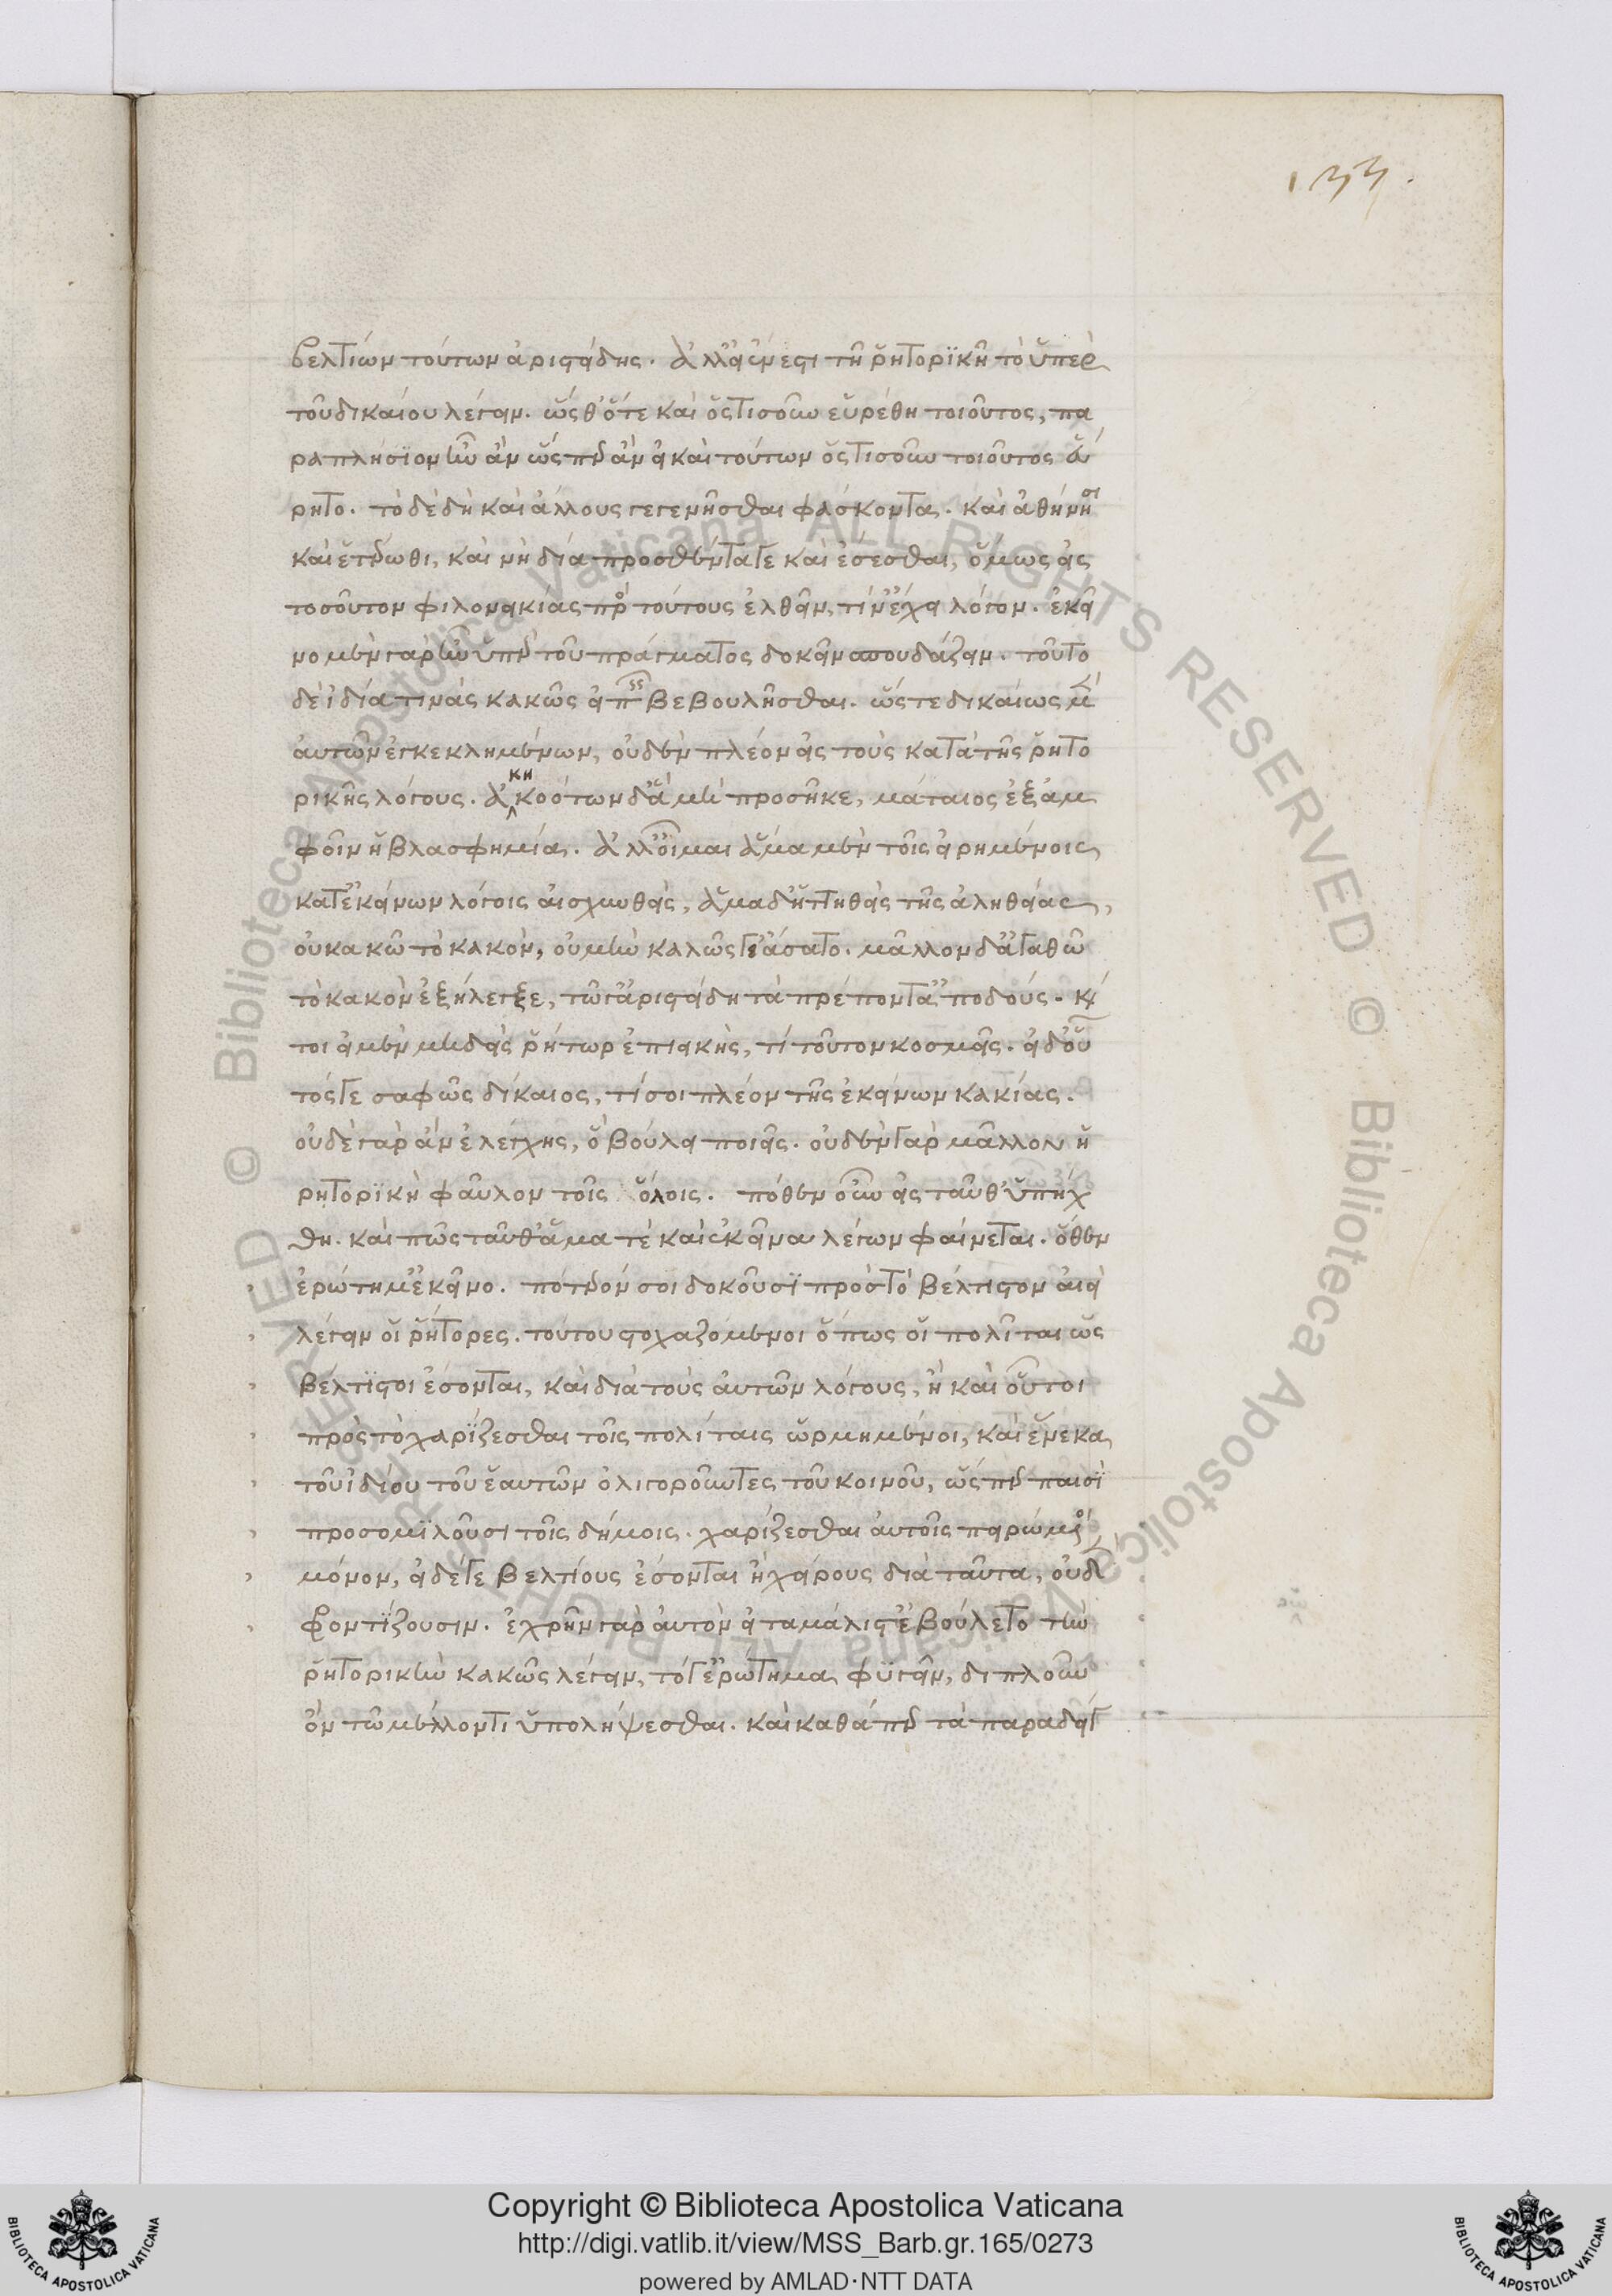 133.
βελτίων τούτων ἀριστείδης. ἀλλ' εἰ ἔνεστι τῆ ῥητορϊκῆ τὸ ὑπὲρ
τοῦ δικαίου λέγειν. ὥσθ' ὅτε καὶ ὅστισοῦν εὑρέθη τοιοῦτος, πα
ραπλήσϊον ἦν ἂν ὥσπερ ἂν εἰ καὶ τούτων ὅστισοῦν τοιοῦτος εὕ
ρητο. τὸ δὲ δὴ καὶ ἄλλους γεγενῆσθαι φάσκοντα. καὶ ἀθήνησι
καὶ ἑτέρωθι, καὶ νὴ δία προσθέντα γε καὶ ἔσεσθαι, ὅμως εἰς
τοσοῦτον φιλονεικίας πρὸς τούτους ἐλθεῖν, τίν' ἔχει λόγον. ἐκεῖ
νο μὲν γὰρ ἦν ὑπὲρ τοῦ πράγματος δοκεῖν σπουδάζειν. τοῦτο
δὲ ἰδία τινὰς κακῶς εἰπεῖν βεβουλῆσθαι. ὥστε δικαίως μὲν
αὐτῶν ἐγκεκλημένων, οὐδὲν πλέον εἰς τοὺς κατὰ τῆς ῥητο
ρικῆς λόγους. ἀκηκοότων δ' ἃ μὴ προσῆκε, μάταιος ἐξ ἀμ
φοῖν ἡ βλασφημία. ἀλλ' οἶμαι ἅμα μὲν τοῖς εἰρημένοις
κατ' ἐκείνων λόγοις αἰσχυνθεὶς, ἅμα δ' ἡττηθεὶς τῆς ἀληθείας,
οὐ κακῶ τὸ κακὸν, οὐ μὴν καλῶς γ' ἰάσατο. μᾶλλον δ' ἀγαθῶ
τὸ κακὸν ἐξήλεγξε, τῶ γ' ἀριστείδη τὰ πρέποντα ἀποδούς. καί
τοι εἰ μὲν μηδεὶς ῥήτωρ ἐπιεικὴς, τί τοῦτον κοσμεῖς. εἰ δ' οὗ
τός γε σαφῶς δίκαιος, τί σοι πλέον τῆς ἐκείνων κακίας.
οὐδὲ γὰρ ἂν ἐλέγχης, ὃ βούλει ποιεῖς. οὐδὲν γὰρ μᾶλλον ἡ
ρητορϊκὴ φαῦλον τοῖς ὅλοις. πόθεν οὖν εἰς ταῦθ' ὑπήχ
θη. καὶ πῶς ταῦθ' ἅμα τὲ καὶ ἐκεῖνα λέγων φαίνεται. ὅθεν
ἐρώτην' ἐκεῖνο. πότερόν σοι δοκοῦσϊ πρὸς τὸ βέλτιστον ἀεὶ
λέγειν οἱ ῥήτορες. τούτου στοχαζόμενοι ὅπως οἱ πολῖται ὡς
βέλτϊστοι ἔσονται, καὶ διὰ τοὺς αὐτῶν λόγους, ἢ καὶ οὗτοι
πρὸς τὸ χαρϊζεσθαι τοῖς πολίταις ὡρμημένοι, καὶ ἕνεκα
τοῦ ἰδίου τοῦ ἑαυτῶν ὀλιγοροῦντες τοῦ κοινοῦ, ὥσπερ παισὶ
προσομϊλοῦσι τοῖς δήμοις. χαρίζεσθαι αὐτοῖς πειρώμενοι
μόνον, εἰ δέ γε βελτίους ἔσονται ἢ χείρους διὰ ταῦτα, οὐδὲν
φροντϊζουσιν. ἐχρῆν γὰρ αὐτὸν εἰ τα μάλιστ' ἐβούλετο τὴν
ῥητορικὴν κακῶς λέγειν, τό γ' ἐρώτημα φϋγεῖν, διπλοῦν
ὂν τῶ μέλλοντι ὑπολήψεσθαι. καὶ καθάπερ τὰ παραδείγ
Copyright © Biblioteca Apostolica Vaticana
http://digi.vatlib.it/view/MSS_Barb.gr.165/0273
powered by AMLAD·NTT DATA